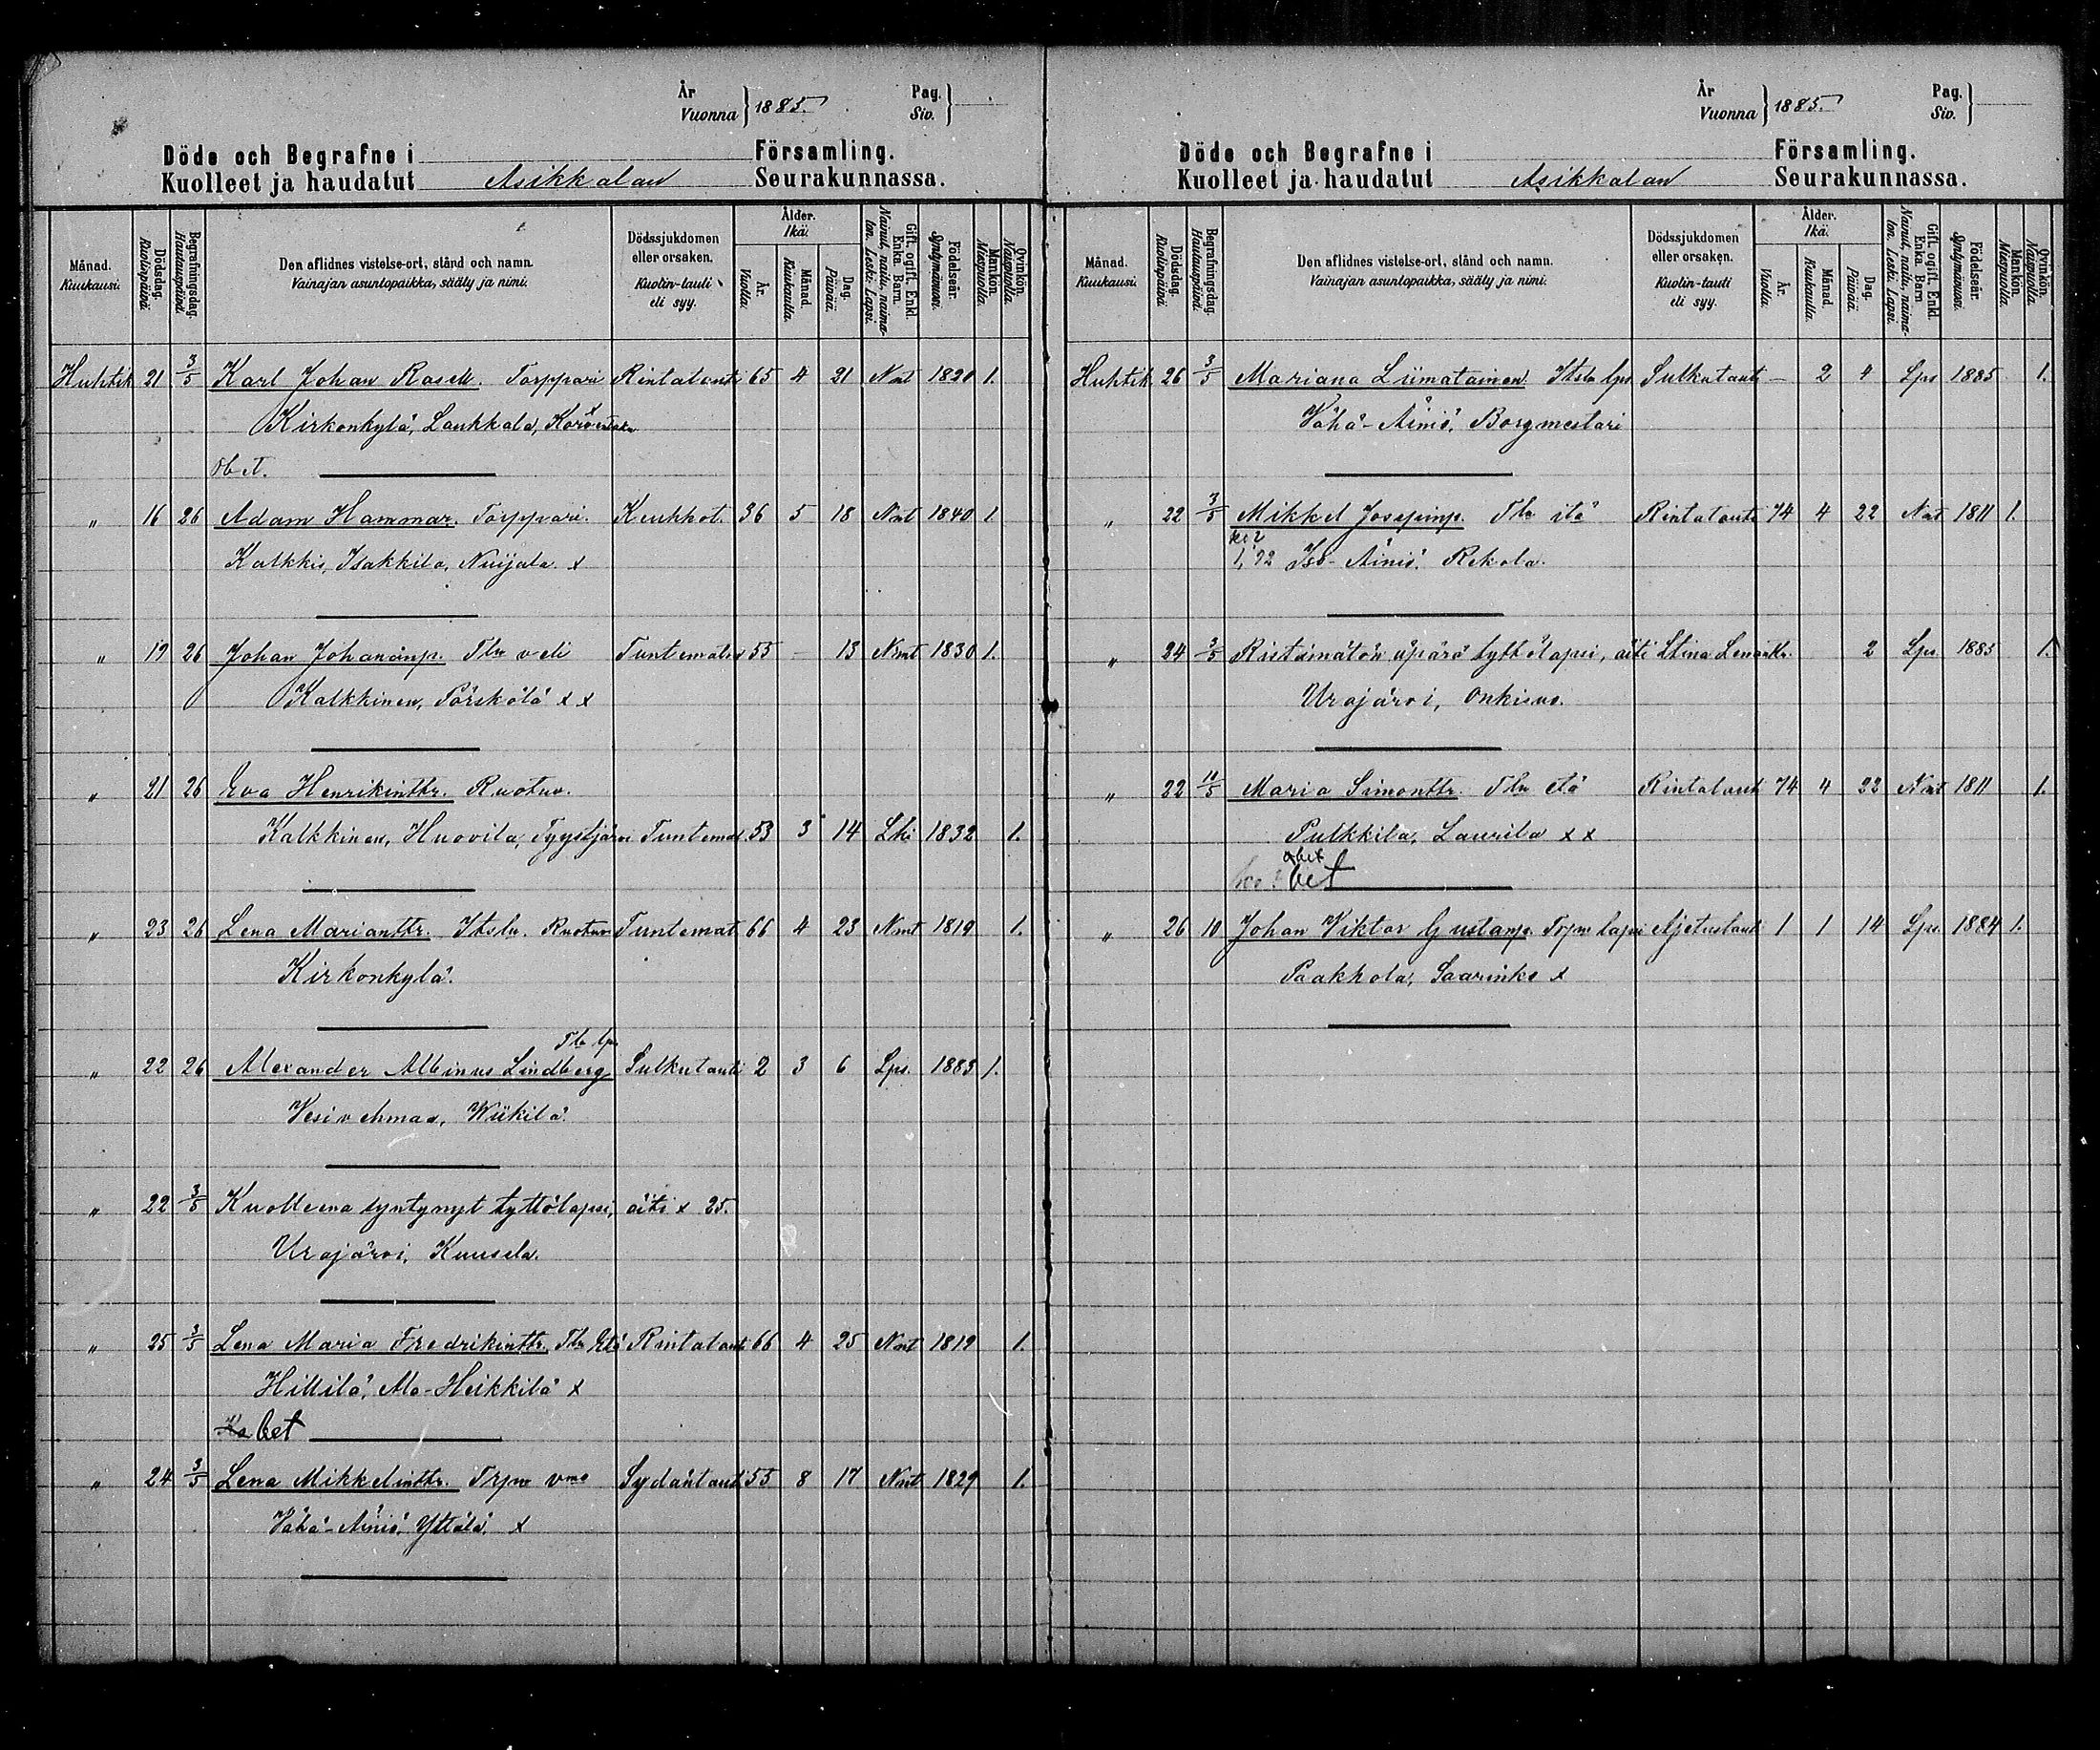 År
Vuonna } 1885.
Pag.
Siv. }
Döde och Begrafne i Församling.
Kuolleet ja haudatut Asikkalan Seurakunnassa.
Månad. Kuukausi.
Dödsdag. Kuolinpäivä.
Begrafningsdag. Hautauspäivä.
Den aflidnes vistelse-ort, stånd och namn.
Vainajan asuntopaikka, sääty ja nimi.
Dödssjukdomen eller orsaken.
Kuolin-tauti eli syy.
Ålder. Ikä.
År. Vuotta.
Månad. Kuukautta.
Dag. Päivää.
Gift, ogift, Enkl. Enka, Barn.
Nainut, naitu, naimaton. Leski. Lapsi.
Födelseår. Syntymävuosi.
Mankön. Miespuolia.
Qvinkön. Naispuolia.
Huhtik 21 3/5 Karl Johan Rasell. Torppari Rintatauti 65 4 21 Nnt 1820 1.
Kirkonkylä, Laukkala,
obet.
" 16 26 Adam Hammar. Torppari. Keuhkot. 36 5 18 Nnt 1840 1
Kalkkis, Isakkila, Nuijala x
" 19 26 Johan Johananp. Tln veli Tuntematon 55 – 13 Nmt 1830 1.
Kalkkinen, Pärskälä x x
" 21 26 Eva Henrikinttr. Ruotuv.
Kalkkinen, Huovila, Tyystjärvi Tuntemat 53 3 14 Lki 1832 1.
" 23 26 Lena Marianttr. Itsln. Ruotuv Tuntemat. 66 4 23 Nmt 1819 1.
Kirkonkylä.
Tln lps
" 22 26 Alexander Albinus Lindberg Sulkutauti 2 3 6 Lps. 1883 1.
Vesivehmaa, Wiikilä.
" 22 3/5 Kuolleena syntynyt tyttölapsi, äiti x 25.
Urajärvi, Kuusela.
" 25 3/5 Lena Maria Fredrikinttr. Tln Etä Rintataut 66 4 25 Nnt 1819 1.
Hillilä, Ala-Heikkilä x
Ko bet
" 24 3/5 Lena Mikkelinttr. Trpn vmo Sydäntauti 55 8 17 Nnt 1829 1.
Vähä-Äiniö, Yttälä, x
År
Vuonna } 1885.
Pag.
Siv. }
Döde och Begrafne i Församling.
Kuolleet ja haudatut Asikkalan Seurakunnassa.
Månad. Kuukausi.
Dödsdag. Kuolinpäivä.
Begrafningsdag. Hautauspäivä.
Den aflidnes vistelse-ort, stånd och namn.
Vainajan asuntopaikka, sääty ja nimi.
Dödssjukdomen eller orsaken.
Kuolin-tauti eli syy.
Ålder. Ikä.
År. Vuotta.
Månad. Kuukautta.
Dag. Päivää.
Gift, ogift, Enkl. Enka, Barn.
Nainut, naitu, naimaton. Leski. Lapsi.
Födelseår. Syntymävuosi.
Mankön. Miespuolia.
Qvinkön. Naispuolia.
Huhtik 26 3/5 Mariana Liimatainen Itsln lps Sulkutauti – 2 4 Lps 1885 1.
Vähä-Äiniö, Borgmestari
" 22 3/5 Mikkel Josefinp. Tln itä Rintatauti 74 4 22 Nnt 1811 1.
Iso-Äiniö. Rekola.
" 24 3/5 Ristimätön äpärä tyttölapsi, äiti Stina Lenantr. 2 Lps 1885 1.
Urajärvi, Onkisuo.
" 22 10/5 Maria Simonttr. Tln etä Rintatauti 74 4 22 Nnt 1811 1.
Pulkkila, Laurila x x
obet
ko? bet
" 26 10 Johan Viktor Gustanp. Trpn lapsi Ajetustauti 1 1 14 Lps. 1884 1.
Paakkola, Saarinko x